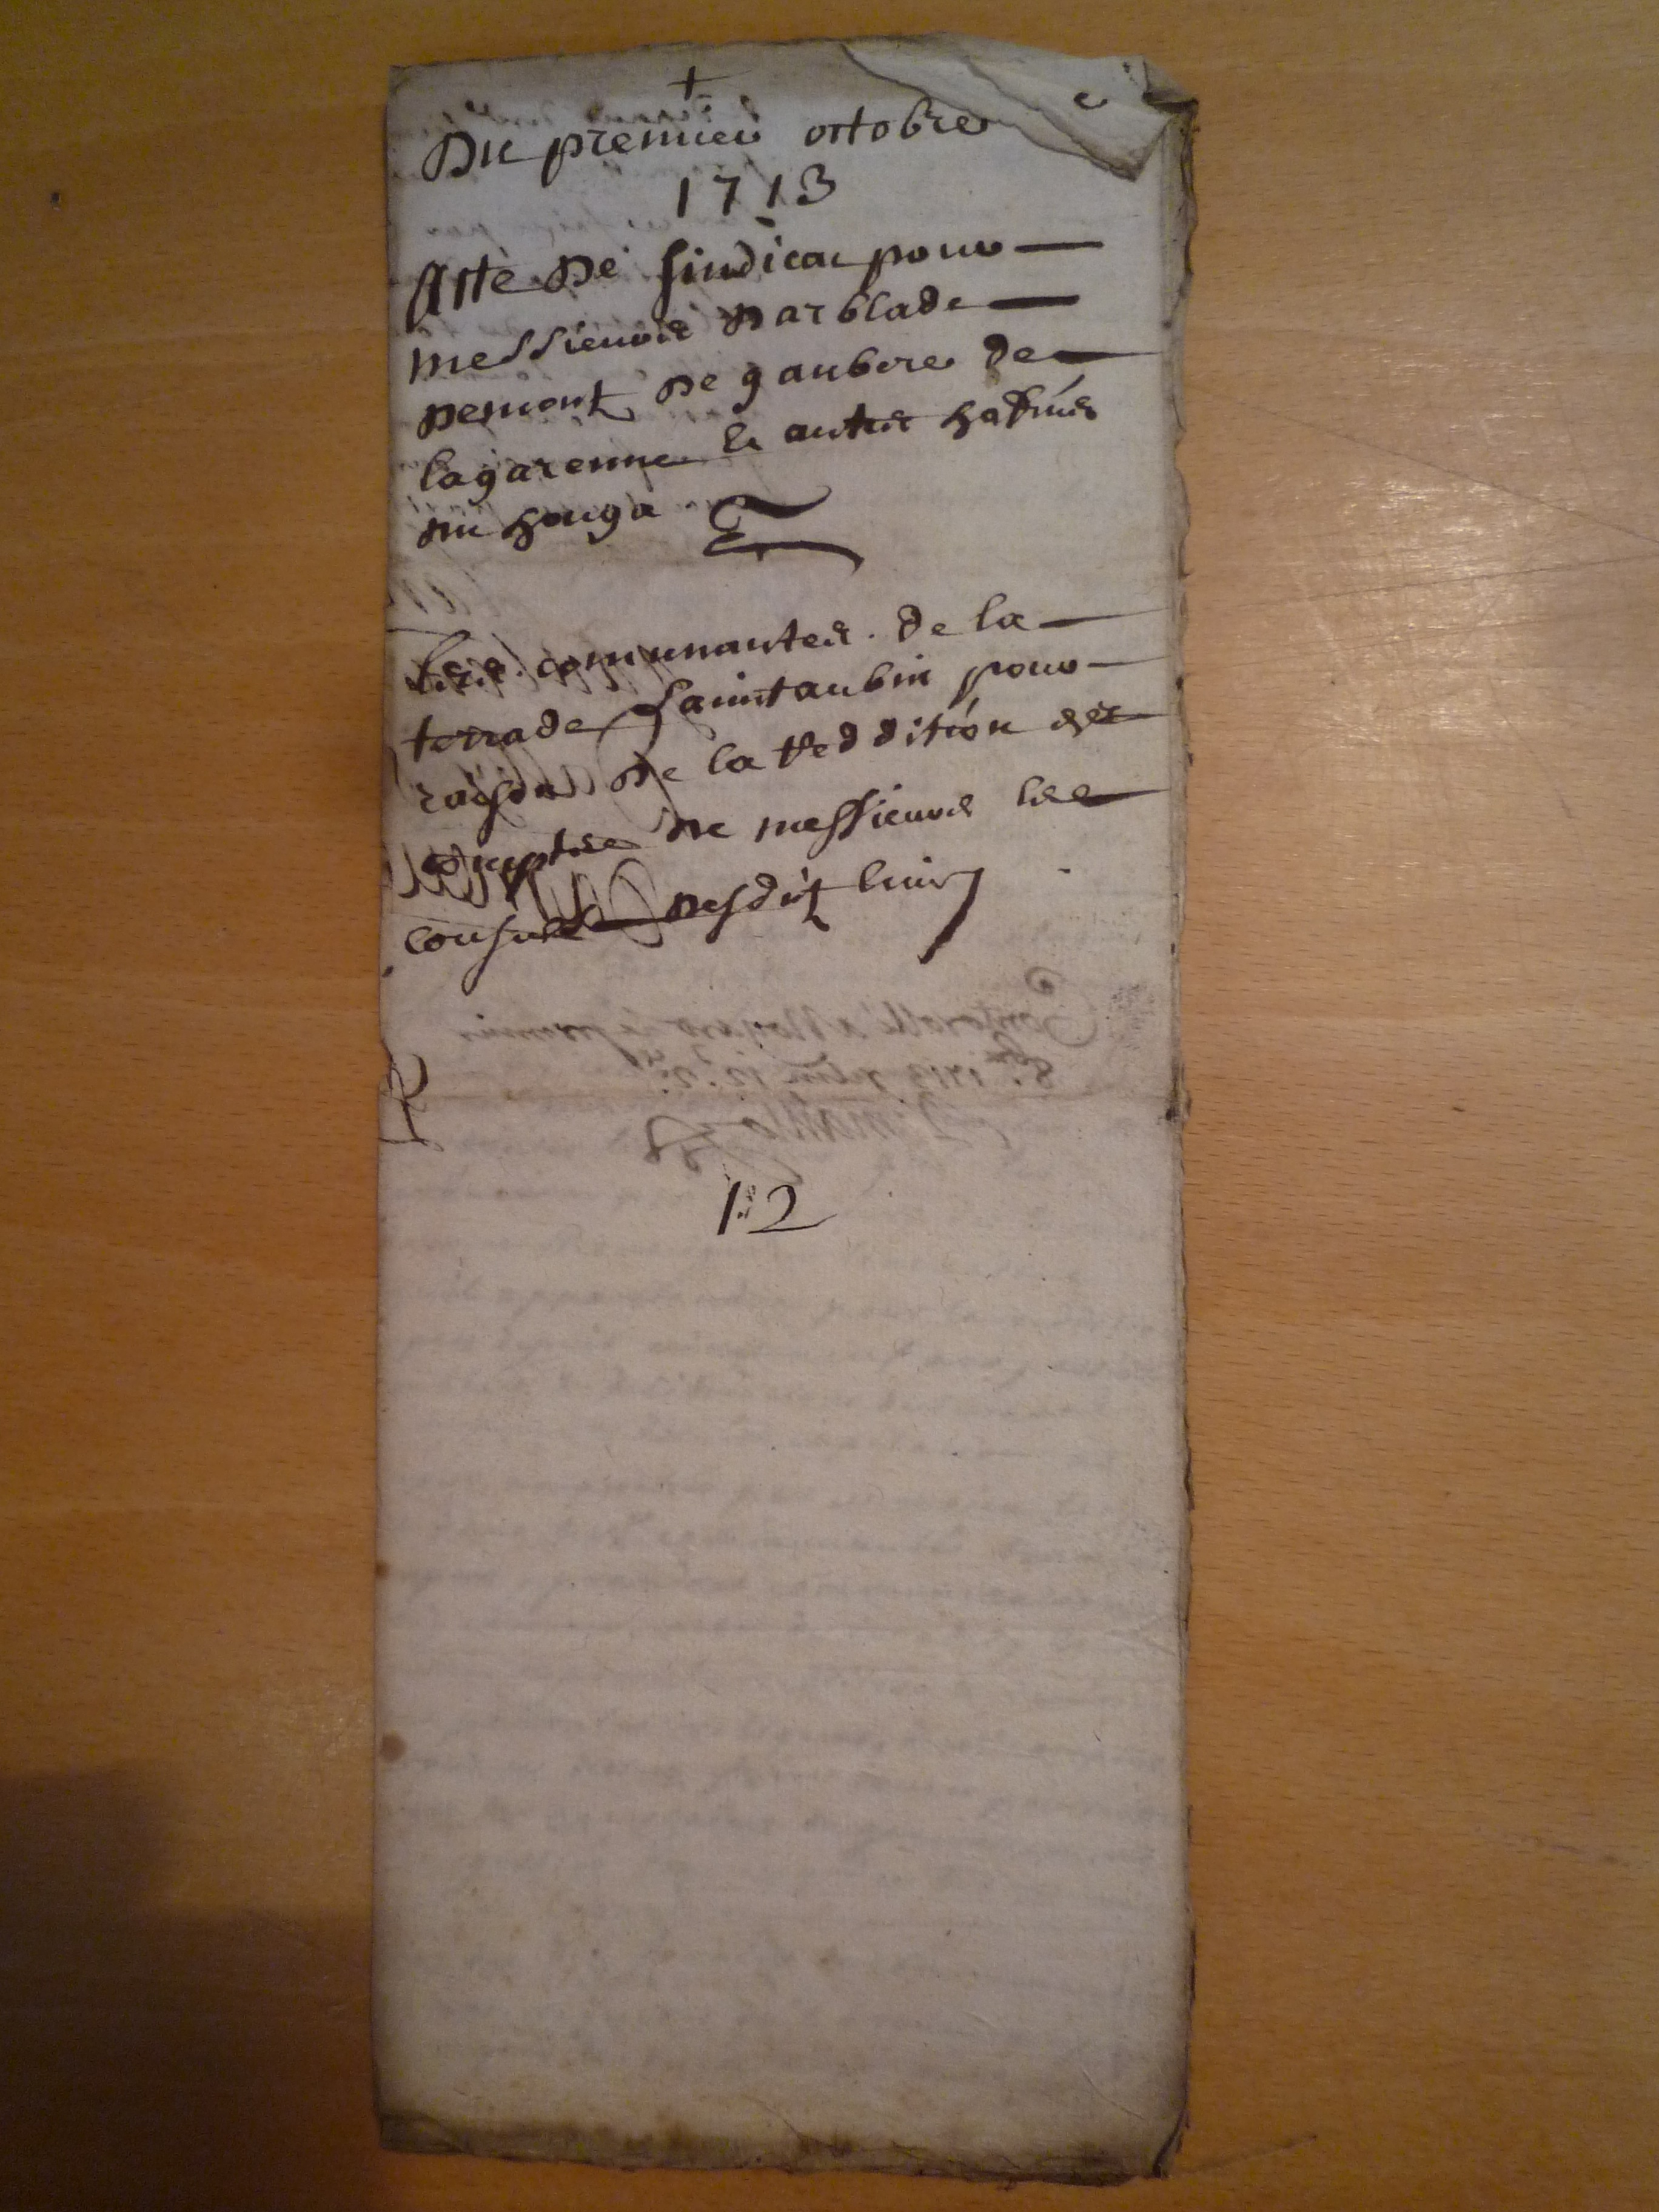 +
Du premier octobre
1713
Acte de sindicat pour
messieurs darblade
demont de gaubere de
lagarenne & autres
du houga
Les communautes de la
terrade saintaubin pour
raison de la reddition des
comptes de messieurs les
consuls desdit lieux
12